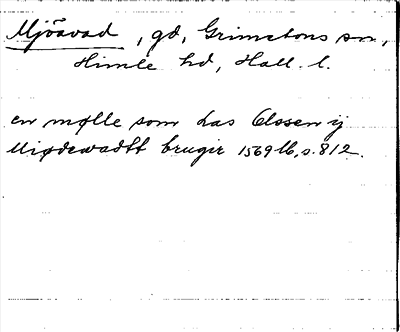 Mjöavad, gd, Grimetons sn,
Himle hd, Hall. l.
en mølle som Las Olssen ij
Miødewadtt brugir 1569 16, s. 812.